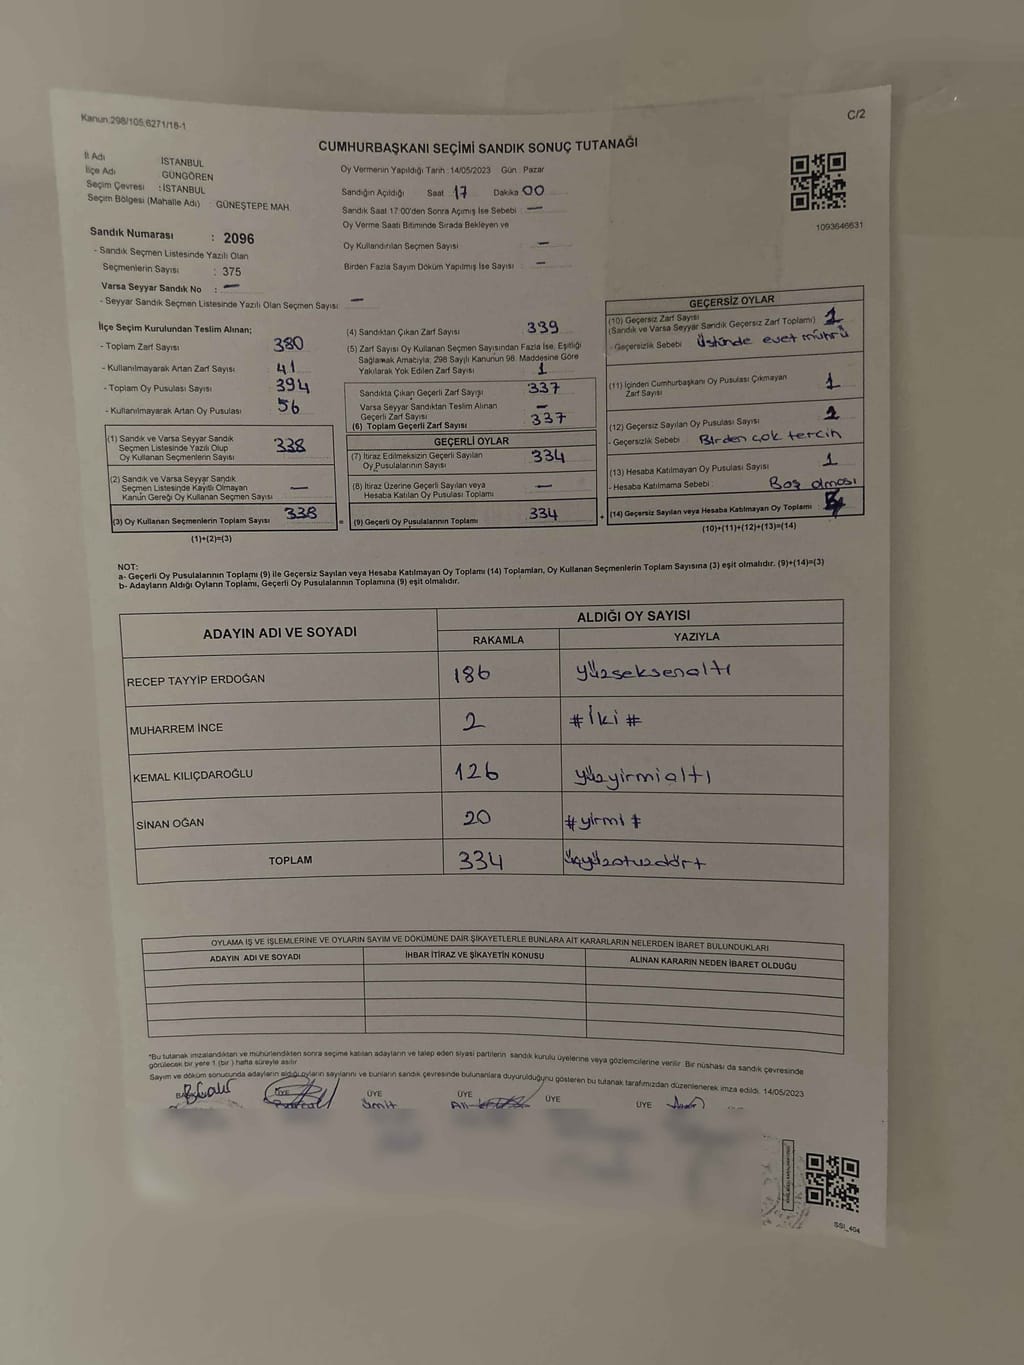 Kanun:298/105,6271/18-1
C/2
CUMHURBAŞKANI SEÇİMİ SANDIK SONUÇ TUTANAĞI
İl Adı İSTANBUL
İlçe Adı GÜNGÖREN
Seçim Çevresi : İSTANBUL
Seçim Bölgesi (Mahalle Adı) GÜNEŞTEPE MAH.
Oy Vermenin Yapıldığı Tarih : 14/05/2023 Gün : Pazar
Sandığın Açıldığı Saat 17 Dakika 00
Sandık Saat 17:00'den Sonra Açımış İse Sebebi : —
Oy Verme Saati Bitiminde Sırada Bekleyen ve
Oy Kullandırılan Seçmen Sayısı —
Birden Fazla Sayım Döküm Yapılmış İse Sayısı : —
1093646631
Sandık Numarası : 2096
- Sandık Seçmen Listesinde Yazılı Olan
Seçmenlerin Sayısı : 375
Varsa Seyyar Sandık No : —
- Seyyar Sandık Seçmen Listesinde Yazılı Olan Seçmen Sayısı : —
İlçe Seçim Kurulundan Teslim Alınan;
- Toplam Zarf Sayısı 380
- Kullanılmayarak Artan Zarf Sayısı 41
- Toplam Oy Pusulası Sayısı 394
- Kullanılmayarak Artan Oy Pusulası 56
(1) Sandık ve Varsa Seyyar Sandık
Seçmen Listesinde Yazılı Olup
Oy Kullanan Seçmenlerin Sayısı 338
(2) Sandık ve Varsa Seyyar Sandık
Seçmen Listesinde Kayıtlı Olmayan
Kanun Gereği Oy Kullanan Seçmen Sayısı —
(3) Oy Kullanan Seçmenlerin Toplam Sayısı 338
(1)+(2)=(3)
(4) Sandıktan Çıkan Zarf Sayısı 339
(5) Zarf Sayısı Oy Kullanan Seçmen Sayısından Fazla İse, Eşitliği
Sağlamak Amacıyla; 298 Sayılı Kanunun 98. Maddesine Göre
Yakılarak Yok Edilen Zarf Sayısı 1
Sandıkta Çıkan Geçerli Zarf Sayısı 337
Varsa Seyyar Sandıktan Teslim Alınan
Geçerli Zarf Sayısı —
(6) Toplam Geçerli Zarf Sayısı 337
GEÇERLİ OYLAR
(7) İtiraz Edilmeksizin Geçerli Sayılan
Oy Pusulalarının Sayısı 334
(8) İtiraz Üzerine Geçerli Sayılan veya
Hesaba Katılan Oy Pusulası Toplamı —
= (9) Geçerli Oy Pusulalarının Toplamı 334 +
GEÇERSİZ OYLAR
(10) Geçersiz Zarf Sayısı
(Sandık ve Varsa Seyyar Sandık Geçersiz Zarf Toplamı) 1
- Geçersizlik Sebebi : Üstünde evet mührü
(11) İçinden Cumhurbaşkanı Oy Pusulası Çıkmayan
Zarf Sayısı 1
(12) Geçersiz Sayılan Oy Pusulası Sayısı
- Geçersizlik Sebebi : Birden çok tercih
(13) Hesaba Katılmayan Oy Pusulası Sayısı 1
- Hesaba Katılmama Sebebi : Boş olması
(14) Geçersiz Sayılan veya Hesaba Katılmayan Oy Toplamı
(10)+(11)+(12)+(13)=(14)
NOT:
a- Geçerli Oy Pusulalarının Toplamı (9) ile Geçersiz Sayılan veya Hesaba Katılmayan Oy Toplamı (14) Toplamları, Oy Kullanan Seçmenlerin Toplam Sayısına (3) eşit olmalıdır. (9)+(14)=(3)
b- Adayların Aldığı Oyların Toplamı, Geçerli Oy Pusulalarının Toplamına (9) eşit olmalıdır.
ADAYIN ADI VE SOYADI
ALDIĞI OY SAYISI
RAKAMLA YAZIYLA
RECEP TAYYİP ERDOĞAN 186 yüzseksenaltı
MUHARREM İNCE 2 #İki#
KEMAL KILIÇDAROĞLU 126 yüzyirmialtı
SİNAN OĞAN 20 #yirmi#
TOPLAM 334 üçyüzotuzdört
OYLAMA İŞ VE İŞLEMLERİNE VE OYLARIN SAYIM VE DÖKÜMÜNE DAİR ŞİKAYETLERLE BUNLARA AİT KARARLARIN NELERDEN İBARET BULUNDUKLARI
ADAYIN ADI VE SOYADI İHBAR İTİRAZ VE ŞİKAYETİN KONUSU ALINAN KARARIN NEDEN İBARET OLDUĞU
*Bu tutanak imzalandıktan ve mühürlendikten sonra seçime katılan adayların ve talep eden siyasi partilerin sandık kurulu üyelerine veya gözlemcilerine verilir. Bir nüshası da sandık çevresinde
görülecek bir yere 1 (bir ) hafta süreyle asılır
Sayım ve döküm sonucunda adayların aldığı oyların sayılarını ve bunların sandık çevresinde bulunanlara duyurulduğunu gösteren bu tutanak tarafımızdan düzenlenerek imza edildi. 14/05/2023
ÜYE ÜYE ÜYE ÜYE ÜYE
Ümit
SSI_404